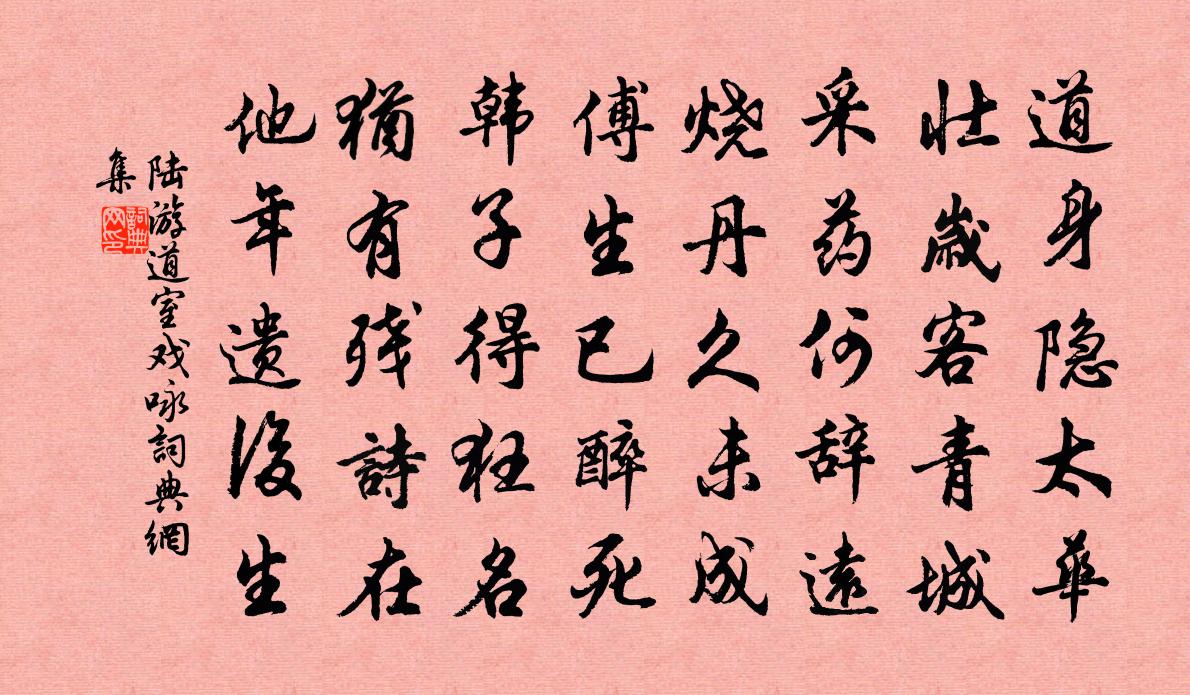 道身隐太華
壮歳客青城
采药何辞遠
烧丹久未成
傅生已醉死
韩子得狂名
猶有残詩在
他年遗後生
陆游道室戏咏詞典網
集
詞典网印